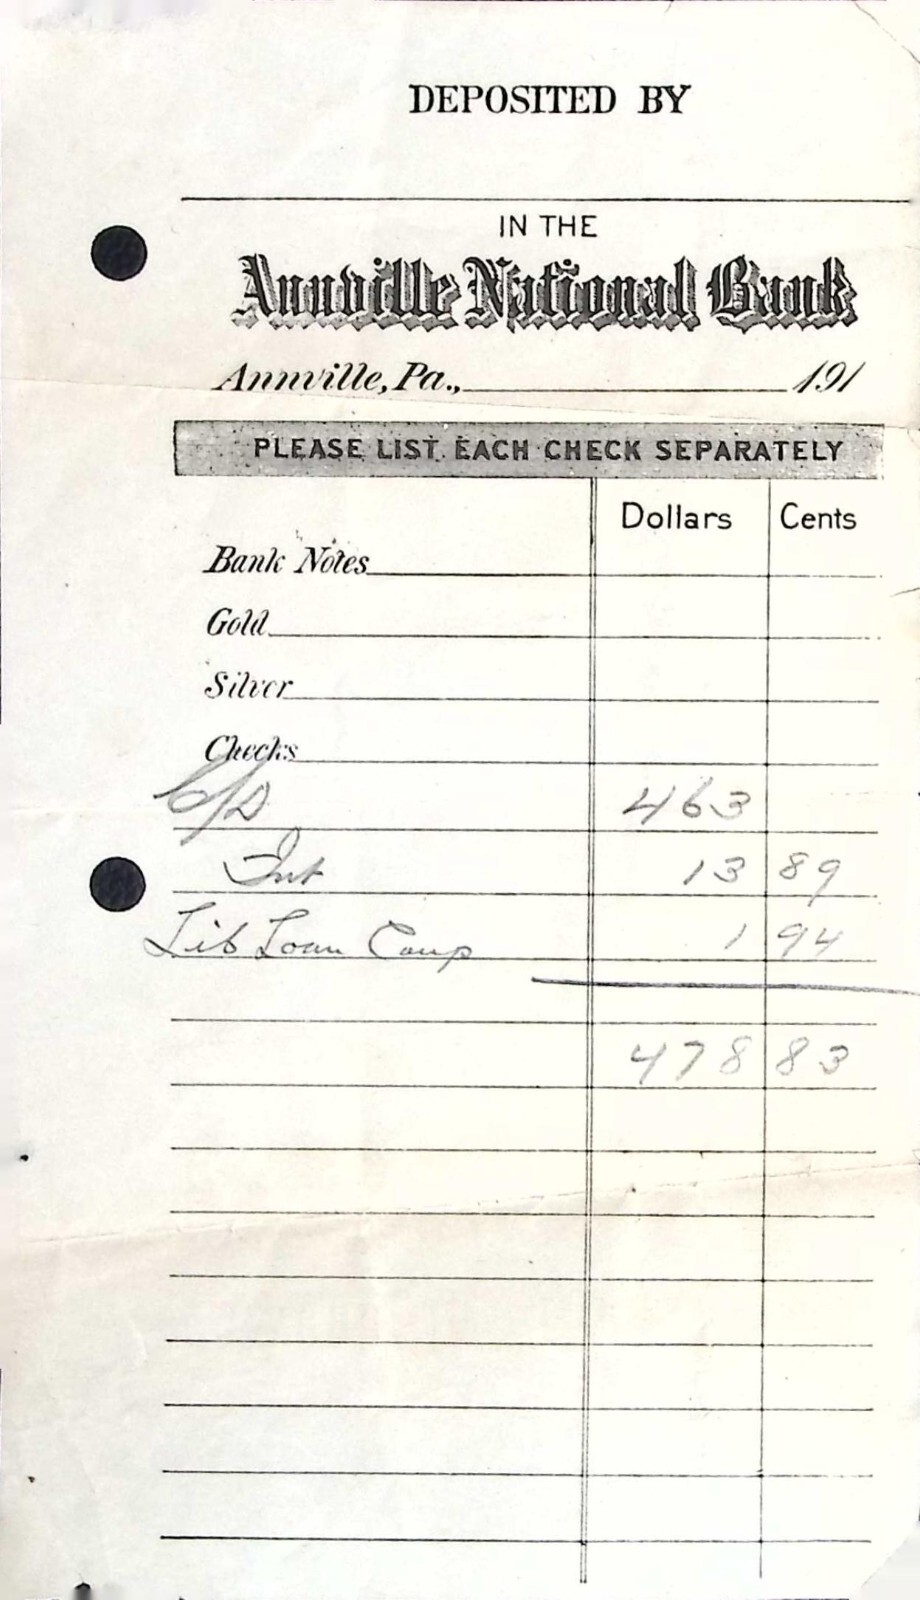 DEPOSITED BY
IN THE
Annville National Bank
Annville, Pa., 191
PLEASE LIST EACH CHECK SEPARATELY
Dollars Cents
Bank Notes
Gold
Silver
Checks
C/D 463
Int 13 89
Lib Loan Coup 1 94
478 83